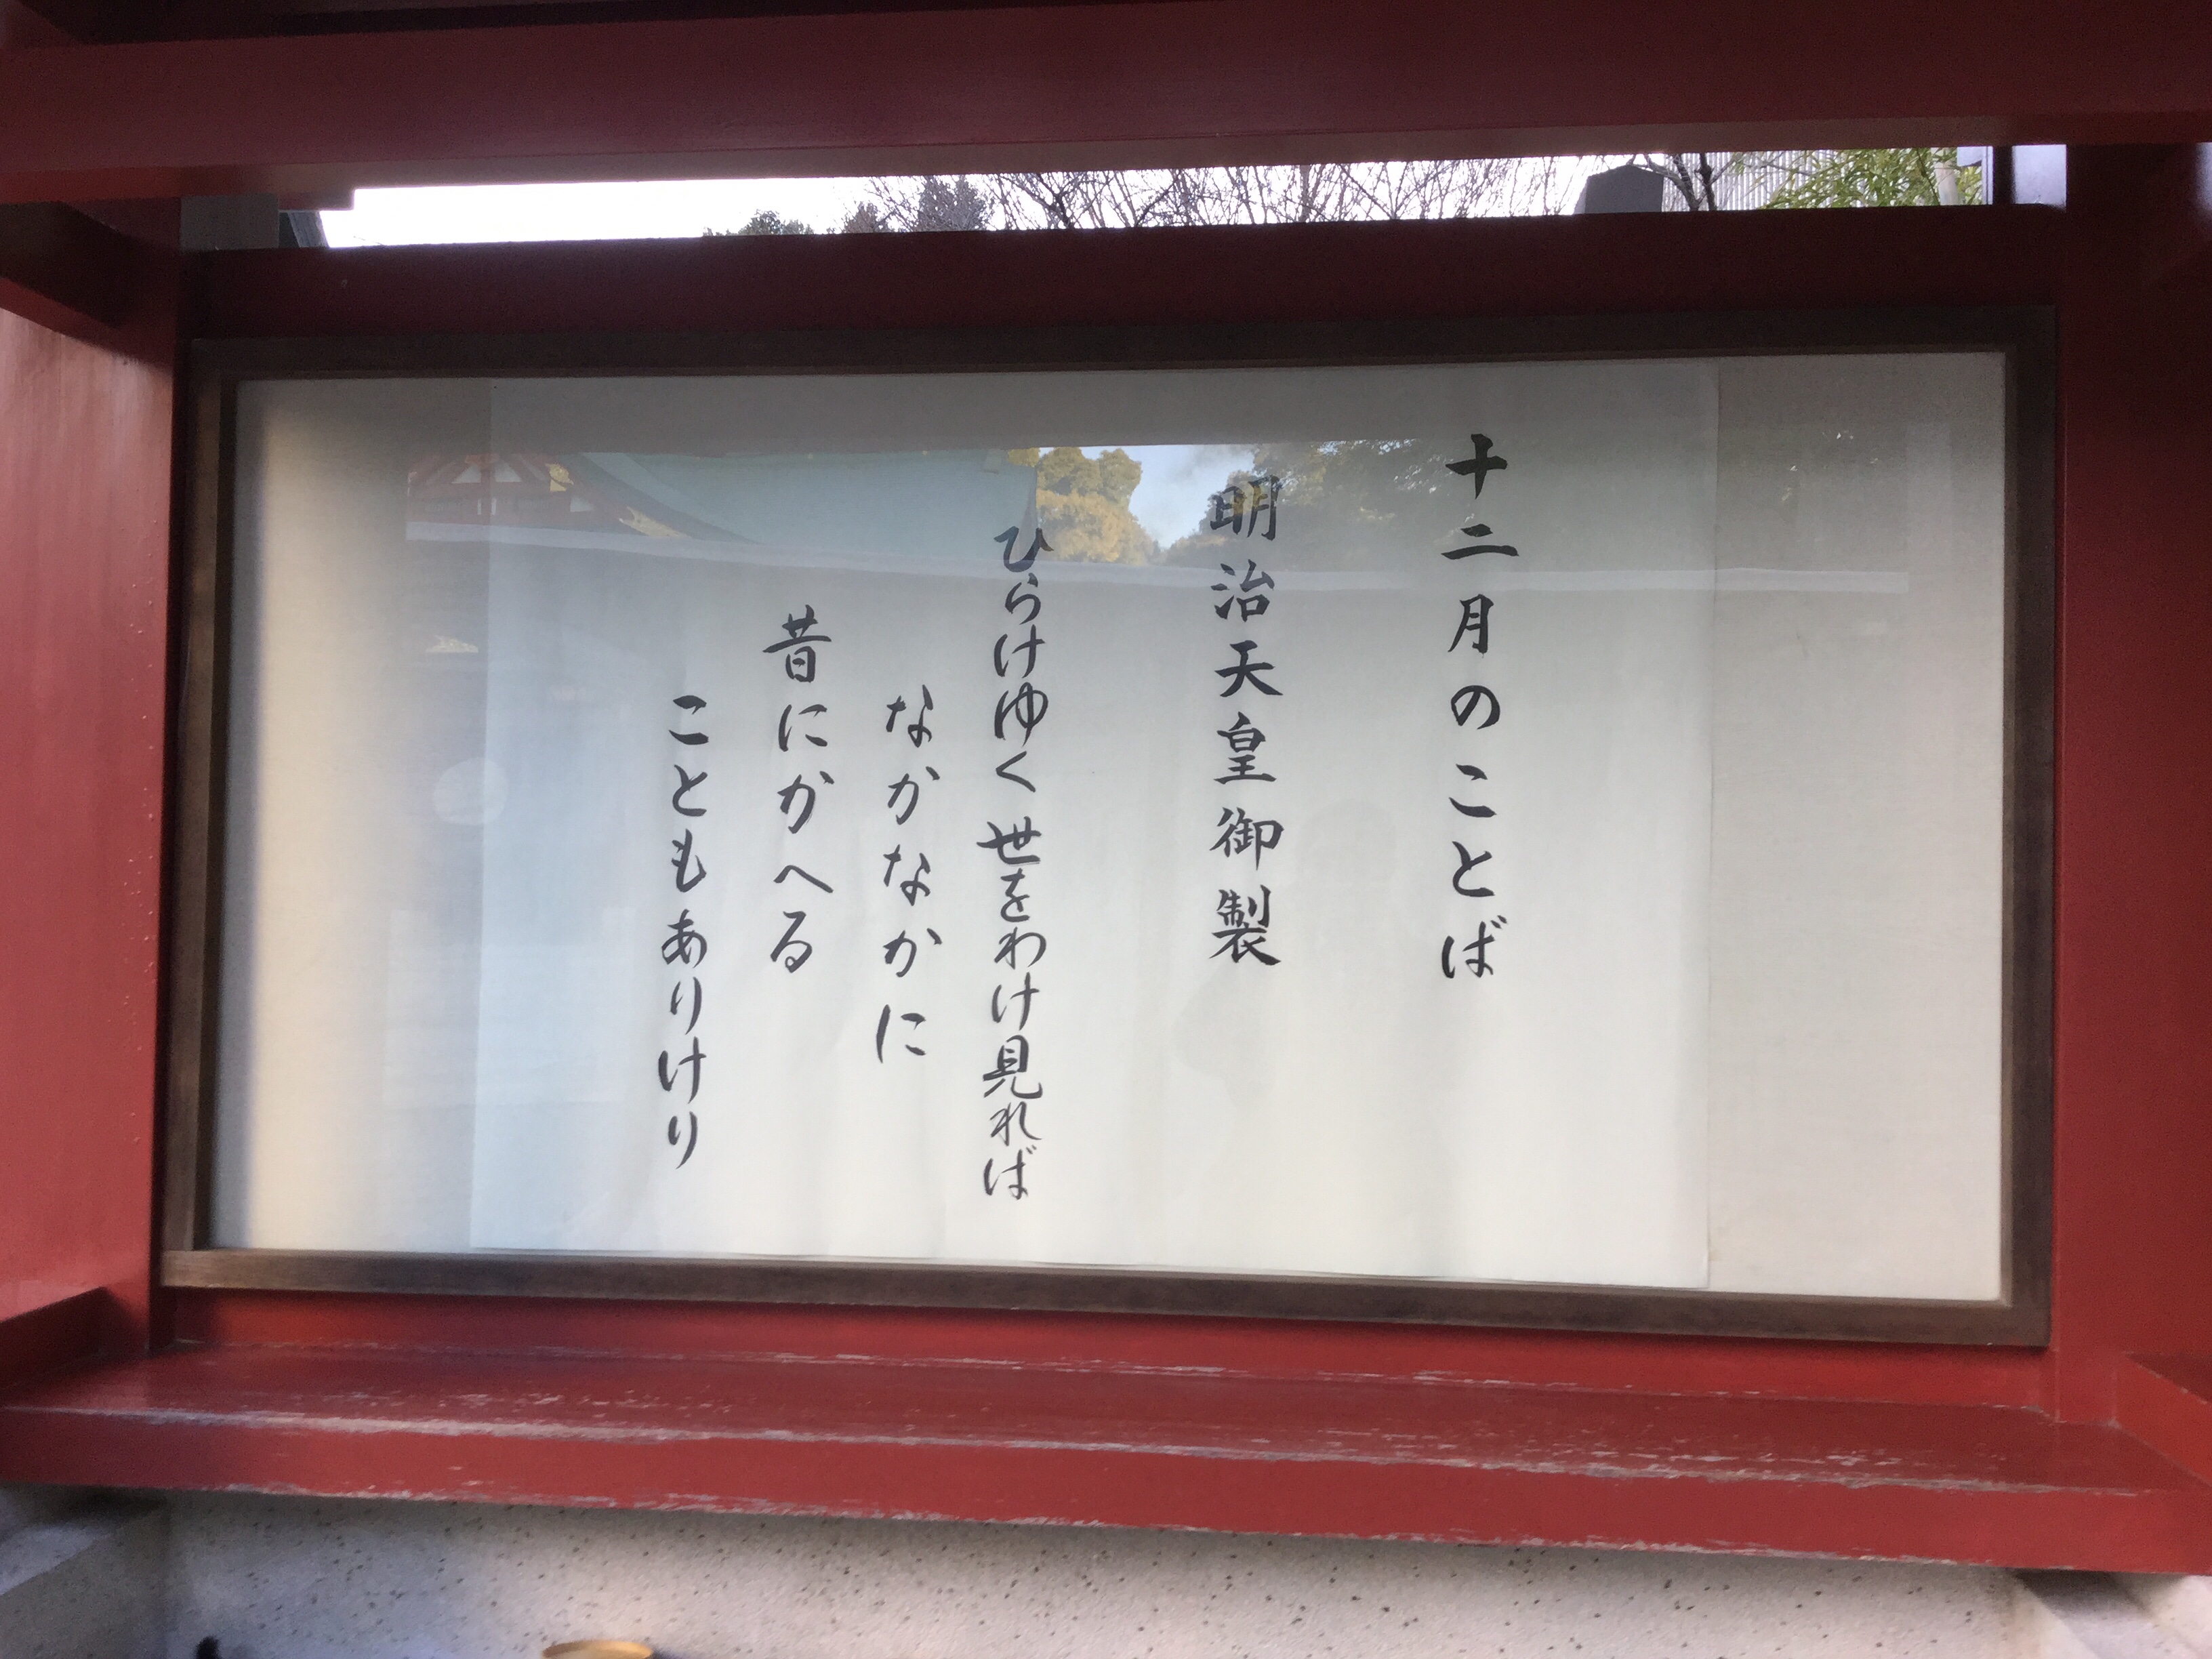 十二月のことば
明治天皇御製
ひらけゆく世をわけ見れば
なかなかに
昔にかへる
こともありけり